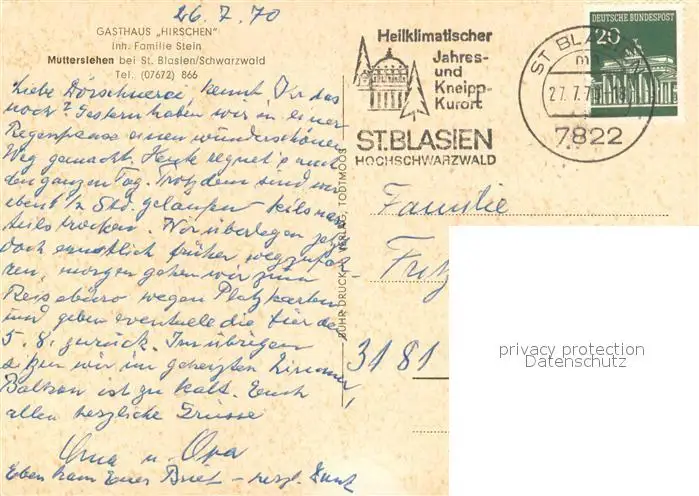 26.7.70
GASTHAUS „HIRSCHEN"
Inh. Familie Stein
Mutterslehen bei St. Blasien/Schwarzwald
Tel. (07672) 866
Liebe Dörschnerei, kennt Ihr das
noch? Gestern haben wir in einer
Regenpause einen wunderschönen
Weg gemacht. Heute regnet's auch
den ganzen Tag. Trotzdem sind wir
eben 1/2 Std. gelaufen teils nass
teils trocken. Wir überlegen jetzt
doch ernstlich früher wegzufah-
ren, morgen gehen wir zum
Reisebüro wegen Platzkarten
und geben eventuell die für den
5.8. zurück. Im übrigen
sitzen wir im geheizten Zimmer,
Balkon ist zu kalt. Euch
allen herzliche Grüsse
Oma u. Opa
Eben kam Euer Brief - herzl. Dank
BUHR DRUCK U. VERLAG, TODTMOOS
Heilklimatischer
Jahres-
und
Kneipp-
Kurort
ST.BLASIEN
HOCHSCHWARZWALD
ST BLASIEN
27.7.70-18
7822
DEUTSCHE BUNDESPOST
20
Familie
Fritz
3181
privacy protection
Datenschutz